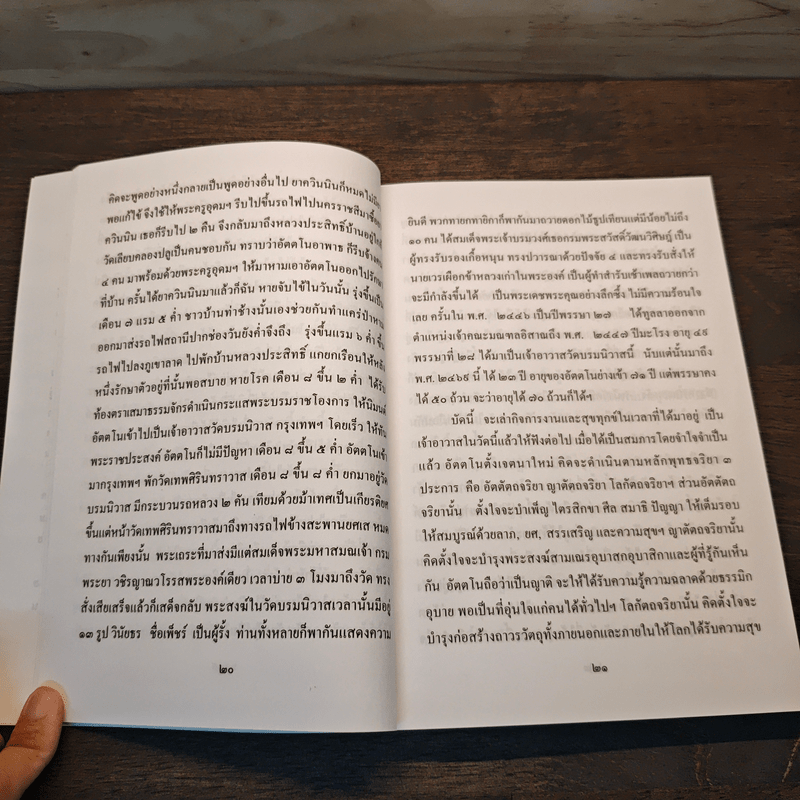 คิดจะพูดอย่างหนึ่งกลายเป็นพูดอย่างอื่นไป ยาควินนินก็หมดไม่มี
พอแก้ไข้ จึงใช้ให้พระครูอุดมฯ รีบไปขึ้นรถไฟไปนครราชสีมาซื้อยา
ควินนิน เธอก็รีบไป ๒ คืน จึงกลับมาถึงหลวงประสิทธิ์บ้านอยู่ใกล้
วัดเลียบคลองปลูเป็นคนชอบกัน ทราบว่าอัตตโนอาพาธ ก็รีบจ้างคน
๔ คน มาพร้อมด้วยพระครูอุดมฯ ให้มาหามเอาอัตตโนออกไปรักษา
ที่บ้าน ครั้นได้ยาควินนินมาแล้วก็ฉัน หายจับไข้ในวันนั้น รุ่งขึ้นเป็น
เดือน ๗ แรม ๕ ค่ำ ชาวบ้านท่าช้างนั้นเองช่วยกันทำแคร่ป่าหาม
ออกมาส่งรถไฟสถานีปากช่องวันยังค่ำจึงถึง รุ่งขึ้นแรม ๖ ค่ำ ขึ้น
รถไฟไปลงภูเขาลาด ไปพักบ้านหลวงประสิทธิ์ แกยกเรือนให้หลัง
หนึ่งรักษาตัวอยู่ที่นั้นพอสบาย หายโรค เดือน ๘ ขึ้น ๒ ค่ำ ได้รับ
ท้องตราเสมาธรรมจักรดำเนินกระแสพระบรมราชโองการ ให้นิมนต์
อัตตโนเข้าไปเป็นเจ้าอาวาสวัดบรมนิวาส กรุงเทพฯ โดยเร็ว ให้ทัน
พระราชประสงค์ อัตตโนก็ไม่มีปัญหา เดือน ๘ ขึ้น ๕ ค่ำ อัตตโนเข้า
มากรุงเทพฯ พักวัดเทพศิรินทราวาส เดือน ๘ ขึ้น ๘ ค่ำ ยกมาอยู่วัด
บรมนิวาส มีกระบวนรถหลวง ๒ คัน เทียมด้วยม้าเทศเป็นเกียรติยศ
ขึ้นแต่หน้าวัดเทพศิรินทราวาสมาถึงทางรถไฟข้างสะพานยศเส หมด
ทางกันเพียงนั้น พระเถระที่มาส่งมีแต่สมเด็จพระมหาสมณเจ้า กรม
พระยา วชิรญาณวโรรสพระองค์เดียว เวลาบ่าย ๓ โมงมาถึงวัด ทรง
สั่งเสียเสร็จแล้วก็เสด็จกลับ พระสงฆ์ในวัดบรมนิวาสเวลานั้นมีอยู่
๑๓ รูป วินัยธร ชื่อเพ็ชร์ เป็นผู้รั้ง ท่านทั้งหลายก็พากันแสดงความ
๒๐
ยินดี พวกทายกทายิกาก็พากันมาถวายดอกไม้ธูปเทียนแต่มีน้อยไม่ถึง
๑๐ คน ได้สมเด็จพระเจ้าบรมวงศ์เธอกรมพระสวัสดิ์วัฒนวิศิษฎ์ เป็น
ผู้ทรงรับรองเกื้อหนุน ทรงปวารณาด้วยปัจจัย ๔ และทรงรับสั่งให้
นายเวรเผือกข้าหลวงเก่าในพระองค์ เป็นผู้ทำสำรับเช้าเพลถวายกว่า
จะมีกำลังขึ้นได้ เป็นพระเดชพระคุณอย่างลึกซึ้ง ไม่มีความร้อนใจ
เลย ครั้นใน พ.ศ. ๒๔๔๖ เป็นปีพรรษา ๒๗ ได้ทูลลาออกจาก
ตำแหน่งเจ้าคณะมณฑลอิสาณถึง พ.ศ. ๒๔๔๗ ปีมะโรง อายุ ๔๙
พรรษาที่ ๒๘ ได้มาเป็นเจ้าอาวาสวัดบรมนิวาสนี้ นับแต่นั้นมาถึง
พ.ศ. ๒๔๖๙ นี้ ได้ ๒๓ ปี อายุของอัตตโนย่างเข้า ๗๑ ปี แต่พรรษาคง
ได้ ๕๐ ถ้วน จะว่าอายุได้ ๗๐ ถ้วนก็ได้ฯ
บัดนี้ จะเล่ากิจการงานและสุขทุกข์ในเวลาที่ได้มาอยู่ เป็น
เจ้าอาวาสในวัดนี้แล้วให้ฟังต่อไป เมื่อได้เป็นสมภารโดยจำใจจำเป็น
แล้ว อัตตโนตั้งเจตนาใหม่ คิดจะดำเนินตามหลักพุทธจริยา ๓
ประการ คือ อัตตัตถจริยา ญาตัตถจริยา โลกัตถจริยาฯ ส่วนอัตตัตถ
จริยานั้น ตั้งใจจะบำเพ็ญ ไตรสิกขา ศีล สมาธิ ปัญญา ให้เต็มรอบ
ให้สมบูรณ์ด้วยลาภ, ยศ, สรรเสริญ และความสุขฯ ญาตัตถจริยานั้น
คิดตั้งใจจะบำรุงพระสงฆ์สามเณรอุบาสกอุบาสิกาและผู้ที่รู้กันเห็น
กัน อัตตโนถือว่าเป็นญาติ จะให้ได้รับความรู้ความฉลาดด้วยธรรมิก
อุบาย พอเป็นที่อุ่นใจแก่คนได้ทั่วไปฯ โลกัตถจริยานั้น คิดตั้งใจจะ
บำรุงก่อสร้างถาวรวัตถุทั้งภายนอกและภายในให้โลกได้รับความสุข
๒๑